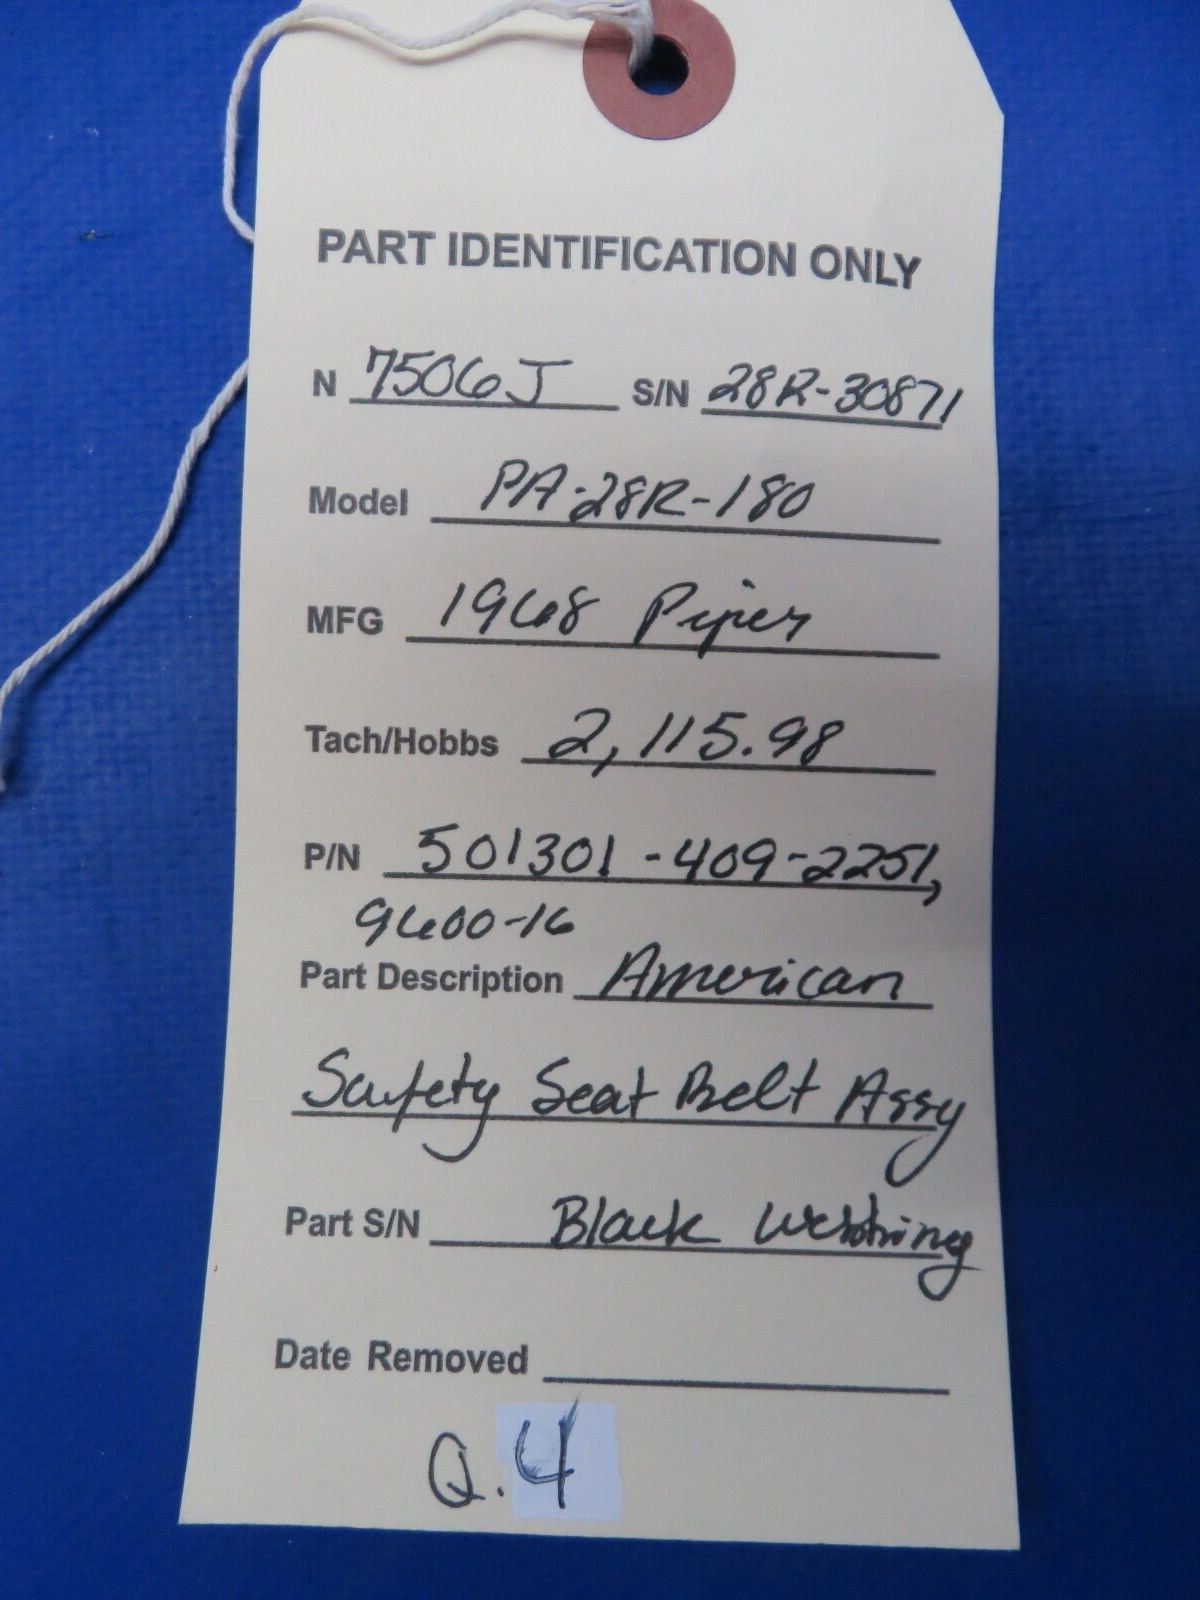 PART IDENTIFICATION ONLY
N 7506J S/N 28R-30871
Model PA-28R-180
MFG 1968 Piper
Tach/Hobbs 2,115.98
P/N 501301-409-2251,
9600-16
Part Description American
Safety Seat Belt Assy
Part S/N Black Webbing
Date Removed
Q.4